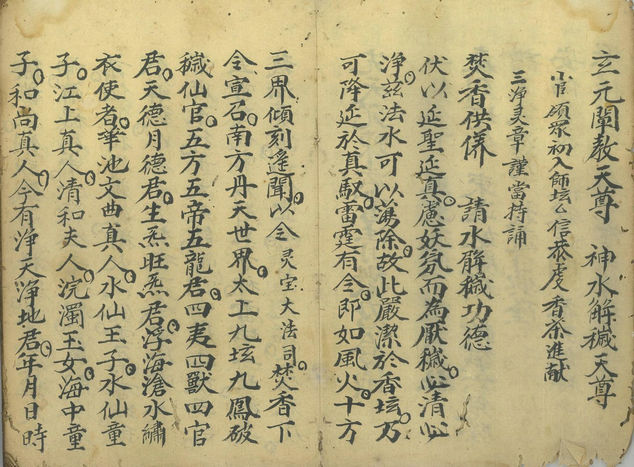 玄元闡教天尊 神水解穢天尊
小官領眾初入師坛么信恭虔 香茶進献
三净灵章 謹當持誦
焚香供养 請水解穢功德
伏以延聖延真慮妖氛而為厭穢心清心
净兹法水可以蕩除故此嚴潔於香坛乃
可降延於真馭雷霆有令即如風火十方
三界傾刻遙聞以令灵宝大法司焚香下
令宣召南方丹天世界太上九坛九鳳破
穢仙官五方五帝五龍君四夷四獸四官
君天德月德君生炁旺炁君浮海滄水繡
衣使者華池文曲真人水仙王子水仙童
子江上真人清和夫人浣濁玉女海中童
子和尚真人今有净天净地君年月日時